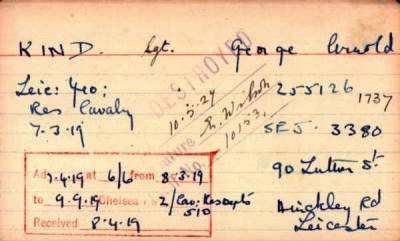 KIND. Sgt. George Arnold
Leic: Yeo: 255126 1737
Res Cavalry
7-3-19 SEJ. 3380
DESTROYED
10.5.24
Signature
E. Wilson
10153.
Ad 7.4.19 at 6/6 from 8.3.19
to 9.9.19 Chelsea 2/Cav: Res
510
Received 8.4.19
90 Luther St
Hinckley Rd
Leicester